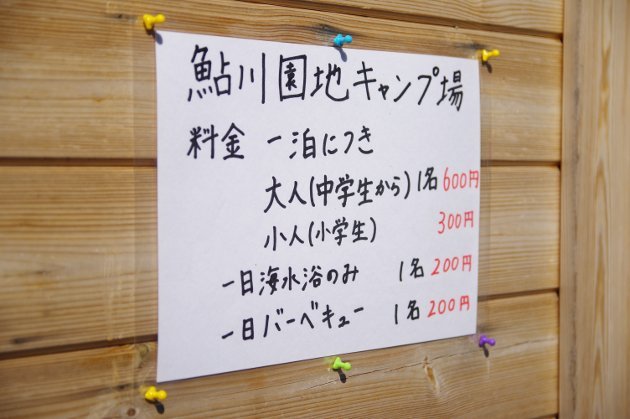 鮎川園地キャンプ場
料金 一泊につき
大人(中学生から) 1名 600円
小人(小学生) 300円
一日海水浴のみ 1名 200円
一日バーベキュー 1名 200円